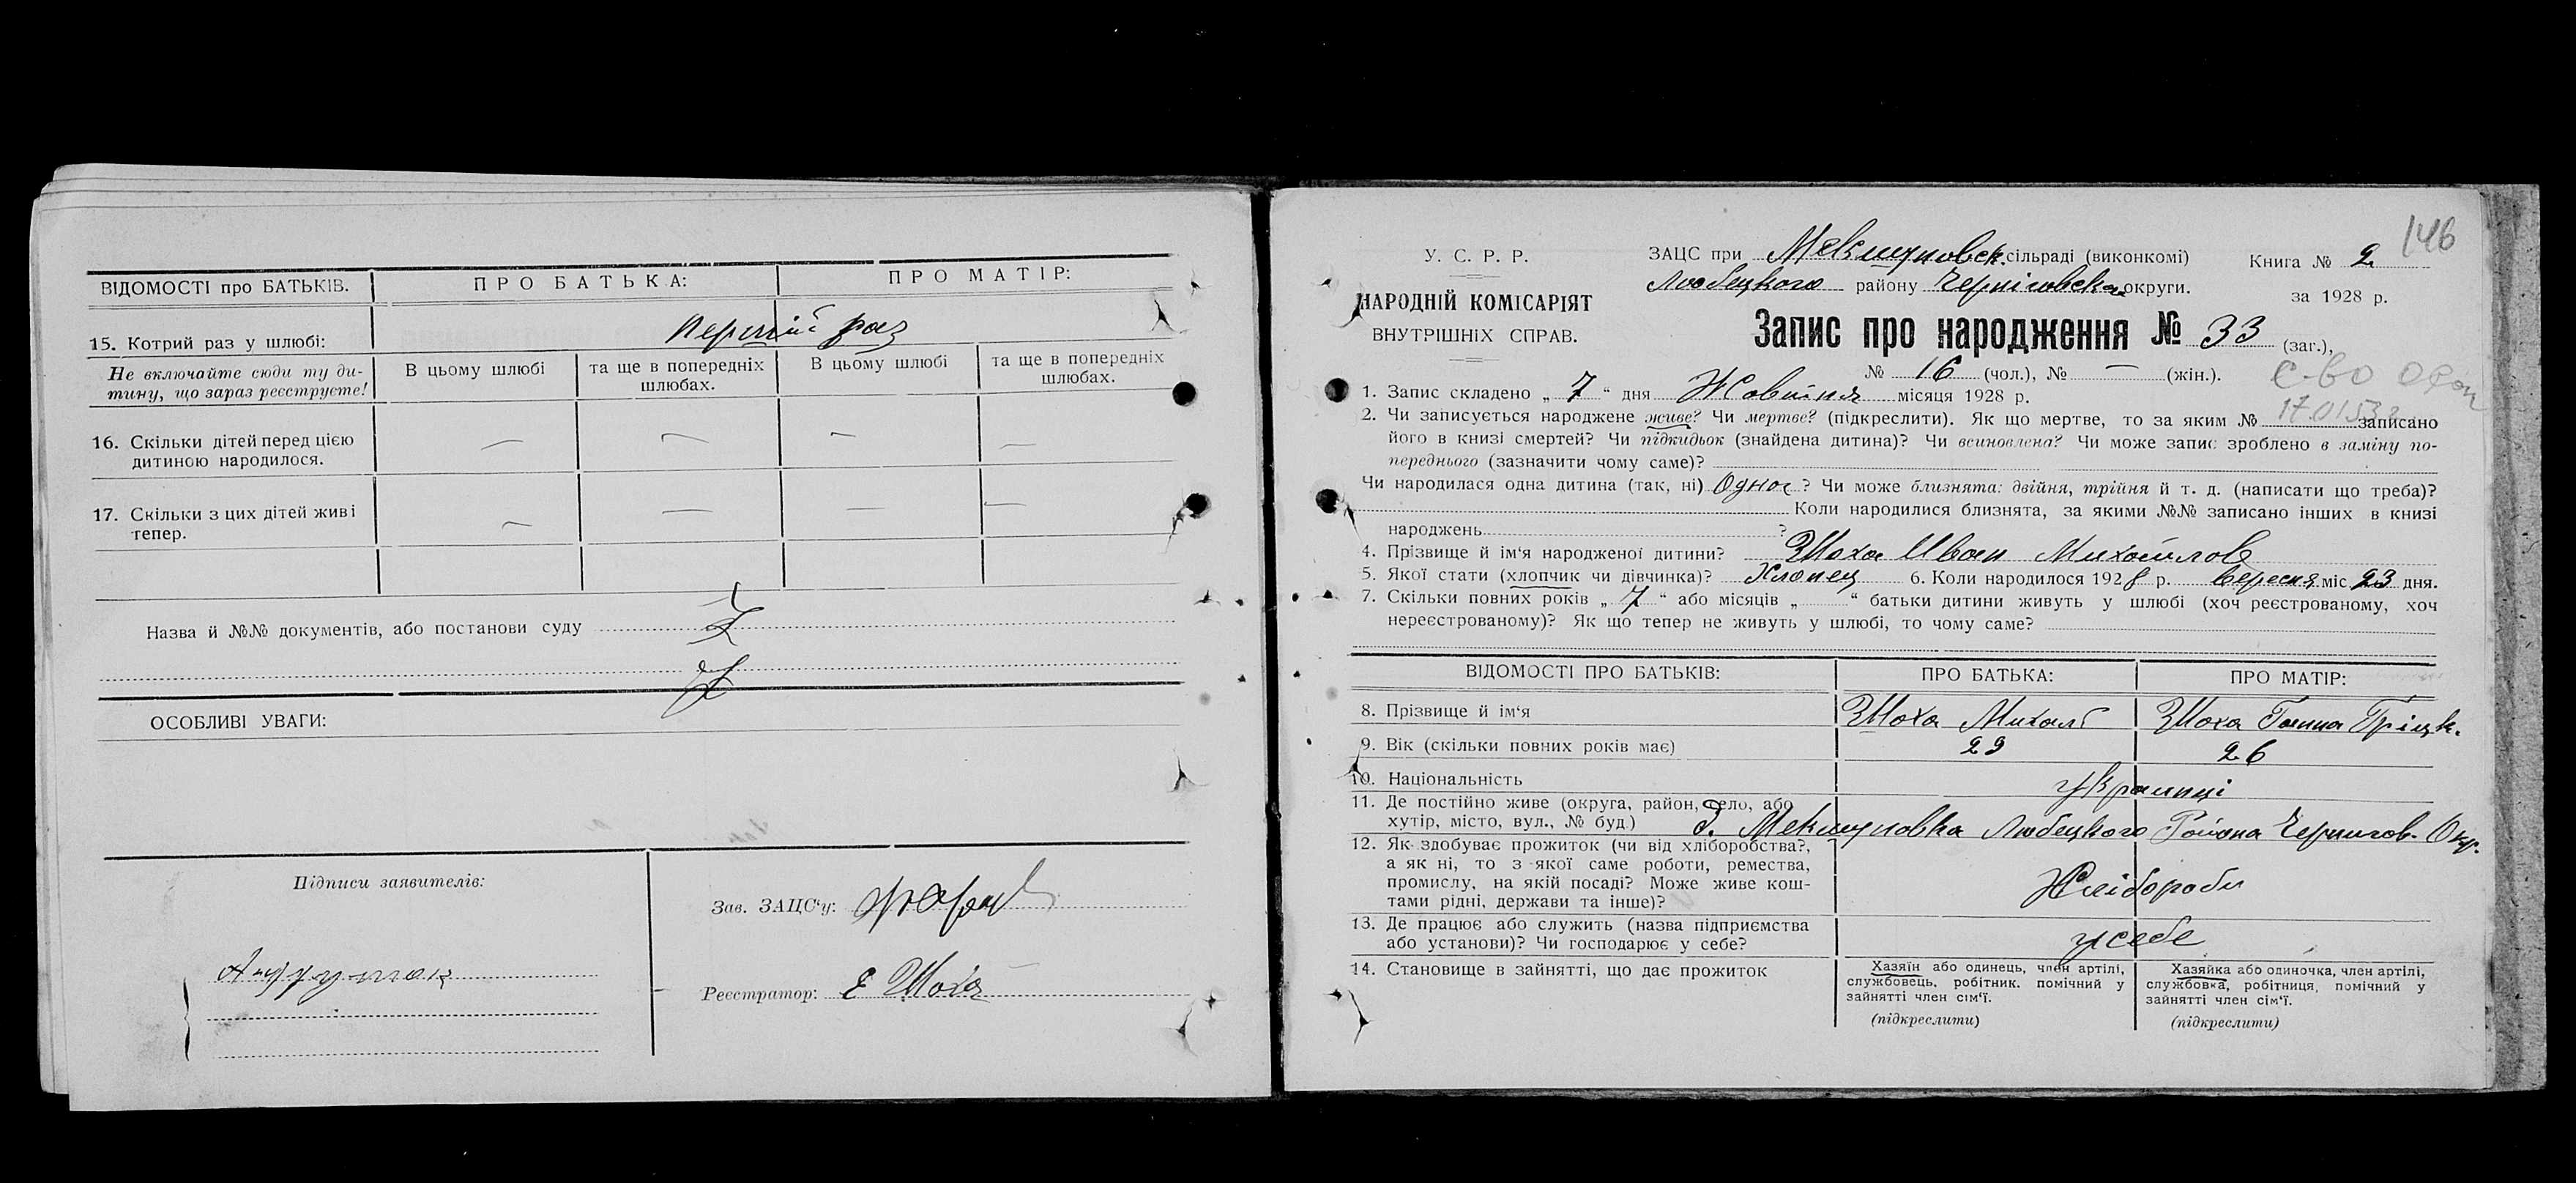 ВІДОМОСТІ про БАТЬКІВ. ПРО БАТЬКА: ПРО МАТІР:
15. Котрий раз у шлюбі: перший раз
Не включайте сюди ту ди-
тину, що зараз реєструєте!
В цьому шлюбі
та ще в попередніх
шлюбах.
В цьому шлюбі
та ще в попередніх
шлюбах.
16. Скільки дітей перед цією
дитиною народилося. — — — —
17. Скільки з цих дітей живі
тепер. — — — —
Назва й №№ документів, або постанови суду
ОСОБЛИВІ УВАГИ:
Підписи заявителів:
Зав. ЗАЦС‘у:
Реєстратор: Е Шоха
146
У. С. Р. Р.
НАРОДНІЙ КОМІСАРІЯТ
ВНУТРІШНІХ СПРАВ.
ЗАЦС при Мекшуновск. сільраді (виконкомі)
Любецкого району Черніговскои округи.
Книга № 2
за 1928 р.
Запис про народження № 33 (заг.),
№ 16 (чол.), № — (жін.).
С-во
1. Запис складено „ 7 “ дня Жовтня місяця 1928 р.
2. Чи записується народжене живе? Чи мертве? (підкреслити). Як що мертве, то за яким № записано
його в книзі смертей? Чи підкидьок (знайдена дитина)? Чи всиновлена? Чи може запис зроблено в заміну по-
переднього (зазначити чому саме)?
Чи народилася одна дитина (так, ні) Одное ? Чи може близнята: двійня, трійня й т. д. (написати що треба)?
Коли народилися близнята, за якими №№ записано інших в книзі
народжень ?
4. Прізвище й ім‘я народженої дитини? Шоха Иван Михайлов
5. Якої стати (хлопчик чи дівчинка)? Хлопец 6. Коли народилося 1928 р. вересня міс 23 дня.
7. Скільки повних років „ 7 “ або місяців „ “ батьки дитини живуть у шлюбі (хоч реєстрованому, хоч
нереєстрованому)? Як що тепер не живуть у шлюбі, то чому саме?
ВІДОМОСТІ ПРО БАТЬКІВ: ПРО БАТЬКА: ПРО МАТІР:
8. Прізвище й ім‘я Шоха Михаил Шоха Ганна Гріцк.
9. Вік (скільки повних років має) 29 26
10. Національність украинці
11. Де постійно живе (округа, район, село, або
хутір, місто, вул., № буд) Мекшуновка Любецкого Района Чернигов. Окр.
12. Як здобуває прожиток (чи від хліборобства?,
а як ні, то з якої саме роботи, ремества,
промислу, на якій посаді? Може живе кош-
тами рідні, держави та інше)? Хлібороби
13. Де працює або служить (назва підприємства
або установи)? Чи господарює у себе? у себе
14. Становище в зайнятті, що дає прожиток
Хазяїн або одинець, член артілі,
службовець, робітник. помічний у
зайнятті член сім‘ї.
(підкреслити)
Хазяйка або одиночка, член артілі,
службовка, робітниця, помічний у
зайнятті член сім‘ї.
(підкреслити)